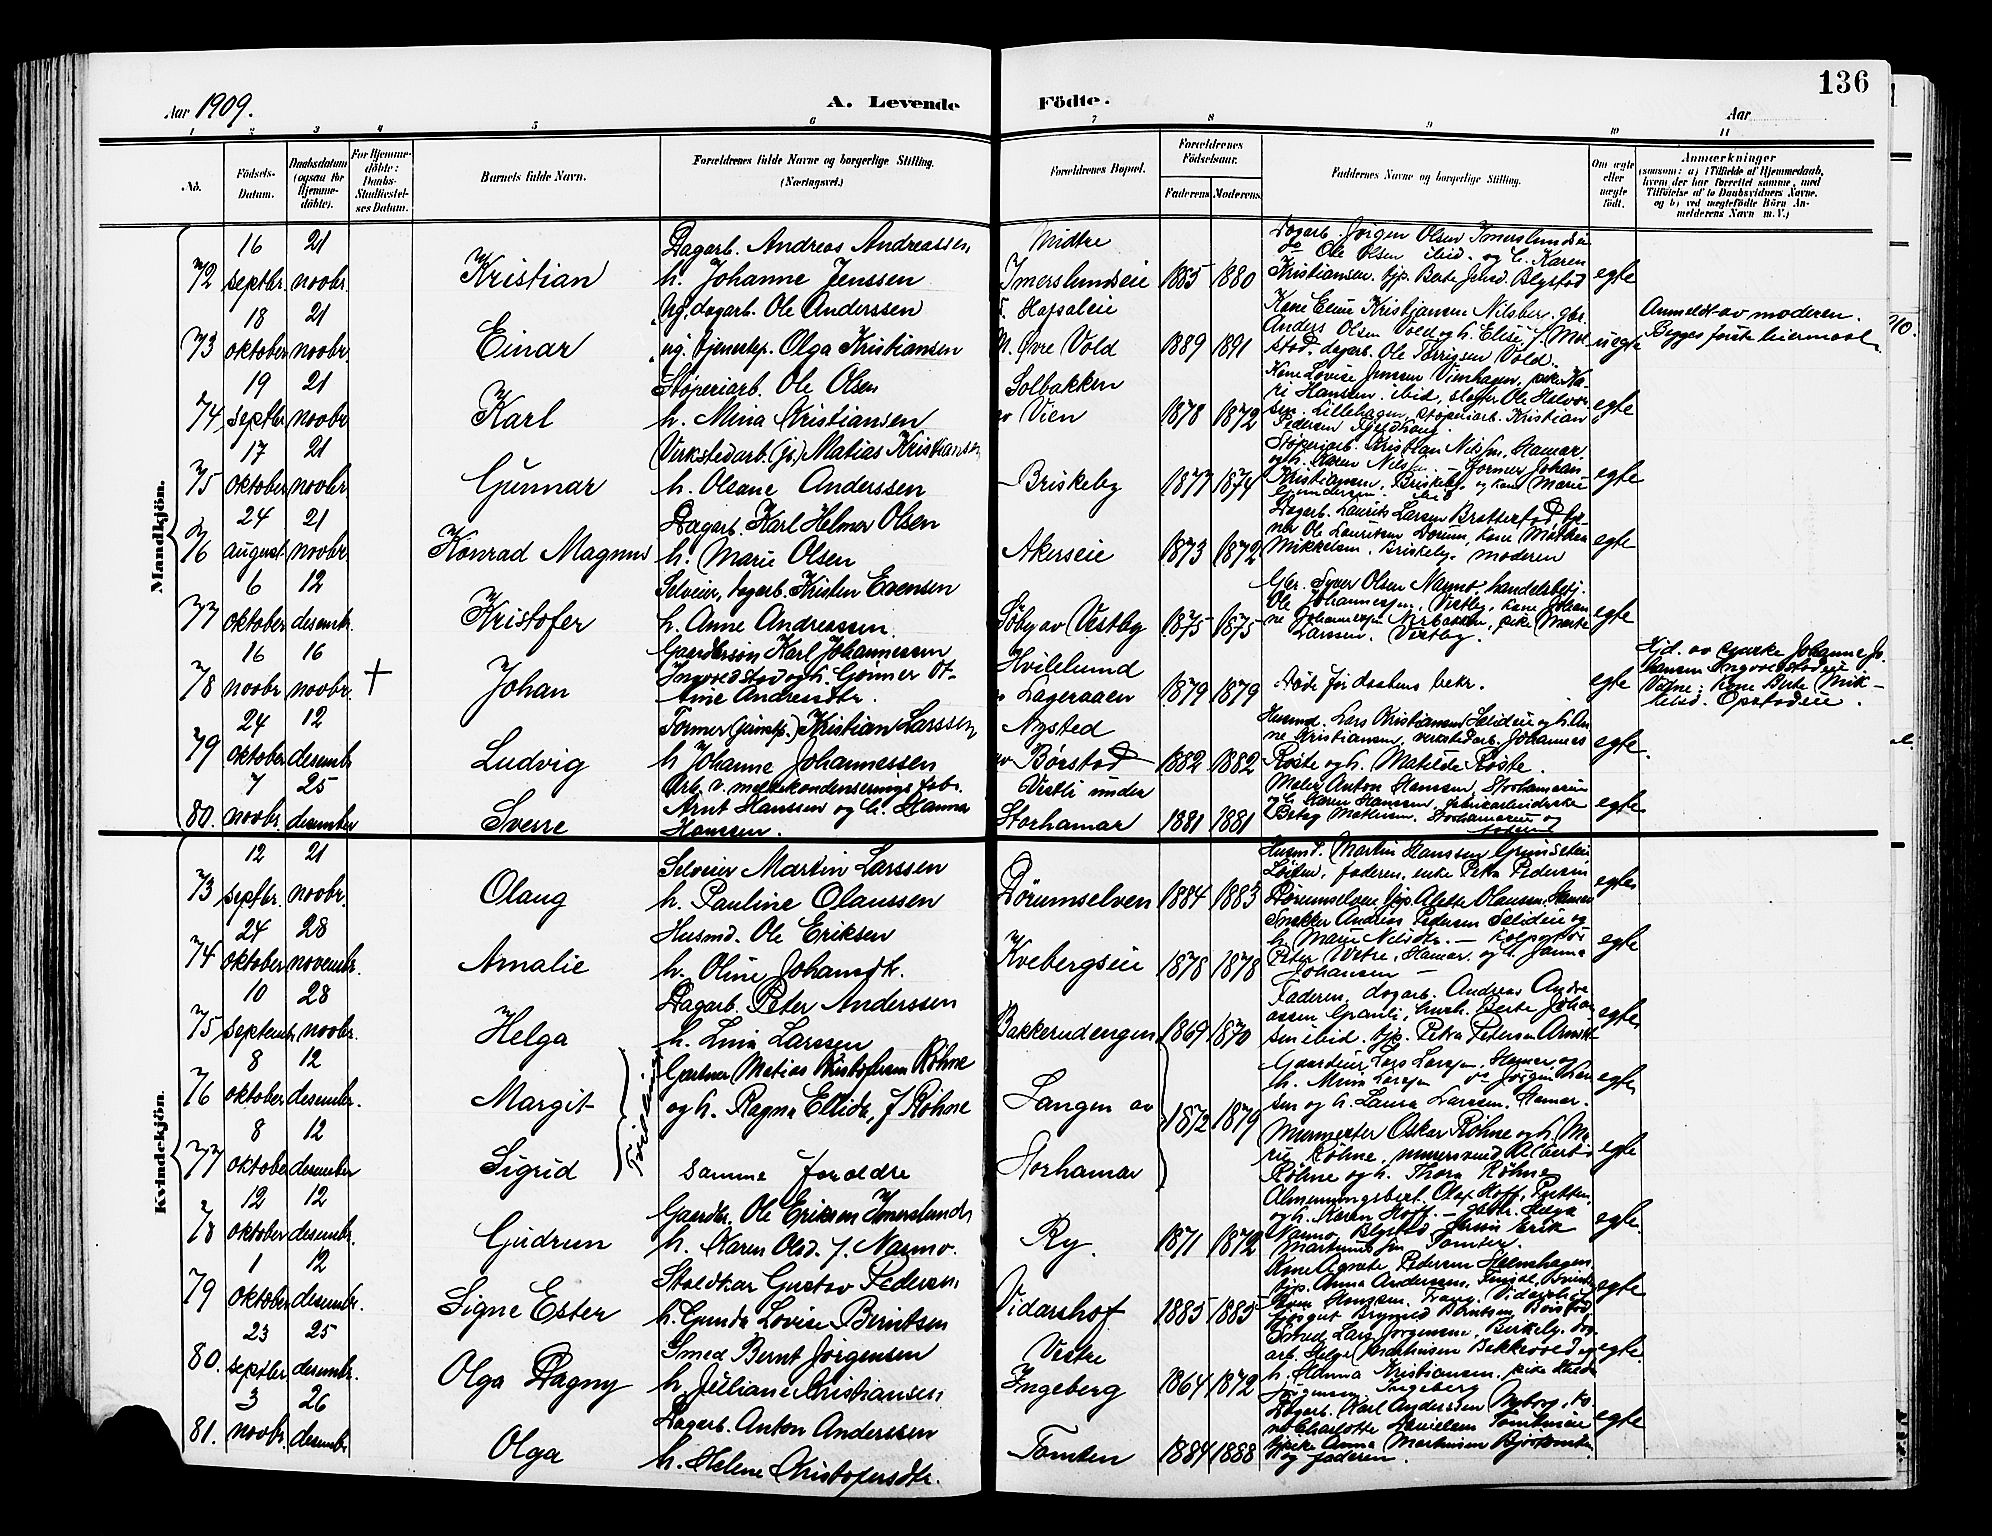 136
Aar 1909.
A. Levende
Födte.
Aar
1 2 3 4 5 6 7 8 9 10 11
No.
Födsels-Datum.
Daabsdatum (ogsaa for Hjemmedöbte).
For Hjemmedöbte: Daabs-Stadfæstelses Datum.
Barnets fulde Navn.
Forældrenes fulde Navne og borgerlige Stilling. (Næringsvei.)
Forældrenes Bopæl.
Forældrenes Födselsaar.
Faderens Moderens
Faddernes Navne og borgerlige Stilling.
Om ægte eller uægte födt.
Anmærkninger
(saasom: a) i Tilfælde af Hjemmedaab, hvem der har forrettet samme, med Tilföielse af to Daabsvidners Navne, og b) ved uægtefödte Börn Anmelderens Navn m. V.)
Mandkjön.
72 16 septbr. 21 novbr. Kristian
Dagarb. Andreas Andreassen
h. Johanne Jenssen
Midtre
Imerslundseie 1885 1880
Dagarb. Jörgen Olsen Imerslundseie
do Ole Olsen ibid. og h. Karen
Kristiansen. tjp. Berte Jensd. Blystad
egte
73 18 oktober 21 novbr. Einar
Ug. dagarb. Ole Anderssen
ug. tjenestep. Olga Kristiansen
F. Hafsaleie
M. Øvre Vold 1889 1891
Kone Eline Kristjansen Nilsber, gbr.
Anders Olsen Vold og h. Elise f. Mel
stad. dagarb. Ole Torrigsen Vold.
uegte
Anmeldt av moderen.
Begges første leiermaal.
74 19 septbr 21 novbr Karl
Støperiarb. Ole Olsen
h. Mina Kristiansen
Solbakken
av Vien 1878 1872
Kone Lovise Jenssen Vienhagen, pike Ka-
ri Hansen ibid, slagter Ole Halvor
sen Lillehagen, støperiarb. Kristian
Pedersen
egte
75 17 oktober 21 novbr Gunnar
Verkstedarb. (js.) Matias Kristiansen
h. Olsane Anderssen
Briskeby 1877 1874
Støperiarb. Kristian Nilsen, Hamar.
og h. Karen Nilsen — Former Johan
Kristiansen, Briskeby og kone Marie
Gundersen ibid
egte
76 24 august 21 novbr. Konrad Magnus
Dagarb. Karl Helmer Olsen
h. Marie Olsen
Akerseie 1873 1872
Dagarb. Laurits Larsen Bratterstad
Ole Lauritsen Dørum, kone Mathea
Mikkelsen, Briskeby. moderen
egte
77 6 oktober 12 desembr. Kristofer
Selveier, dagarb. Kristen Evensen
h. Anne Andreassen.
Søby av Vestby 1875 1875
Gbr. Syver Olsen Narmo, handelsbetj.
Ole Johannessen, Vestby, kone Johan
ne Johannessen Nerbakken, pike Marte
Larssen. Vestby.
egte
78 16 novbr 16 novbr. † Johan
Gaardersøn Karl Johannessen
Ingvoldstad og h. Gønner Ot-
Anne Andreasdtr.
Hvilelund
Lageraaen 1879 1879
Døde før daabens bekr.
egte
Hjd. av enke Johanne Jo-
hansen Ingvoldstadeie
Vidne: kone Berte Mik-
kelsd. Opstadeie.
79 24 oktober 12 desembr Ludvig
Former (jernst.) Kristian Larssen
h Johanne Johannessen
Nysted
av Børstad 1882 1882
Husmd. Lars Kristiansen Selideie og h. An-
ne Kristiansen, verkstedarb. Johannes
Roste og h. Matilde Roste.
egte.
80. 7 novbr. 25 desember Sverre
Arb. v. melkekondenserings fabr.
Arnt Hanssen og h. Hanna
Hanssen.
Vestli under
Storhamar 1881 1881
Maler Anton Hanssen, Storhamareie
og h. Karen Hanssen, fabrikarbeiderske
Betsy Mathisen. Storhamareie og
faderen
egte
Kvindekjön.
73 12 septbr. 21 novbr. Olaug
Selveier Martin Larssen
h. Pauline Olaussen
Dørumselven 1884 1883
Husmd. Martin Hanssen Grimseteie
Løiten, faderen, enke Petra Pedersen
Dørumselven tjp. Alette Olaussen, Hamar
egte
74 24 oktober 28 novembr. Amalie
Husmd. Ole Eriksen
h. Oline Johansdt.
Kvebergseie 1878 1878
Snekker Andreas Pedersen Selideie og
h. Marie Nilsdtr. — Kolportør
Peter Vetre, Hamar, og h. Janna
Johansen —
egte
75 10 septembr. 28 novbr. Helga
Dagarb. Peter Anderssen
h. Lina Larssen
Bakkerudengen 1869 1870
Faderen, dagarb. Andreas Andre
assen Granli, hush. Berte Johan
sen ibid. tjp. Petra Pedersen
egte
76 8 oktober 12 desembr. Margit
Tvillinger
Gartner Matias Kristofersen Røhne
og h. Ragna Ellida, f Røhne
Langen av
1872 1879
Gaardeier Lars Larsen, Hamar, og
h. Mina Larsen do Jørgen Lar
sen og h. Laura Larssen. Hamar.
egte
77 8 oktober 12 desember Sigrid
samme foraldre
Storhamar
Murmester Oskar Røhne og h. Ma
rie Røhne, murersvend Albert
Røhne og h. Thora Røhne
egte
78 12 oktober 12 desembr. Gudrun
Gaardbr. Ole Eriksen Imerslund
h. Karen Olsd. f. Narmo.
Ry. 1871 1872
Almenningsbest. Olaf Hoff, Pütten
og h. Karen Hoff. — gbstr. Helga
Narmo, Blystad Erik
Martinussen Tomter.
egte.
79 1 oktober 12 desembr. Signe Ester
Staldkar Gustav Pedersen
h. Gunda Lovise Berntsen
Vidarshof 1885 1885
Kone Agnete Pedersen Holmshagen
tjp. Anna Anderssen,
Vidarshof
Berntsen, Børstad
egte
80. 23 septbr 25 desembr. Olga Dagny
Smed Bernt Jørgensen
h. Juliane Kristiansen
Vestre
Ingeberg 1864 1872
Smed Lars Jørgensen, Birkeby, dag
arb. Helge Mathisen Bekkevold og
h. Hanna Kristiansen. pike Hulda
Jørgensen, Ingeberg
egte.
81. 3 novbr. 26 desembr Olga
Dagarb. Anton Anderssen
h. Helene Kristofersdtr.
Tomten 1884 1888
Dagarb. Karl Anderssen Nyborg, ko-
ne Charlotte Danielsen Tomteneie
pike Anna Martinsen
og faderen.
egte